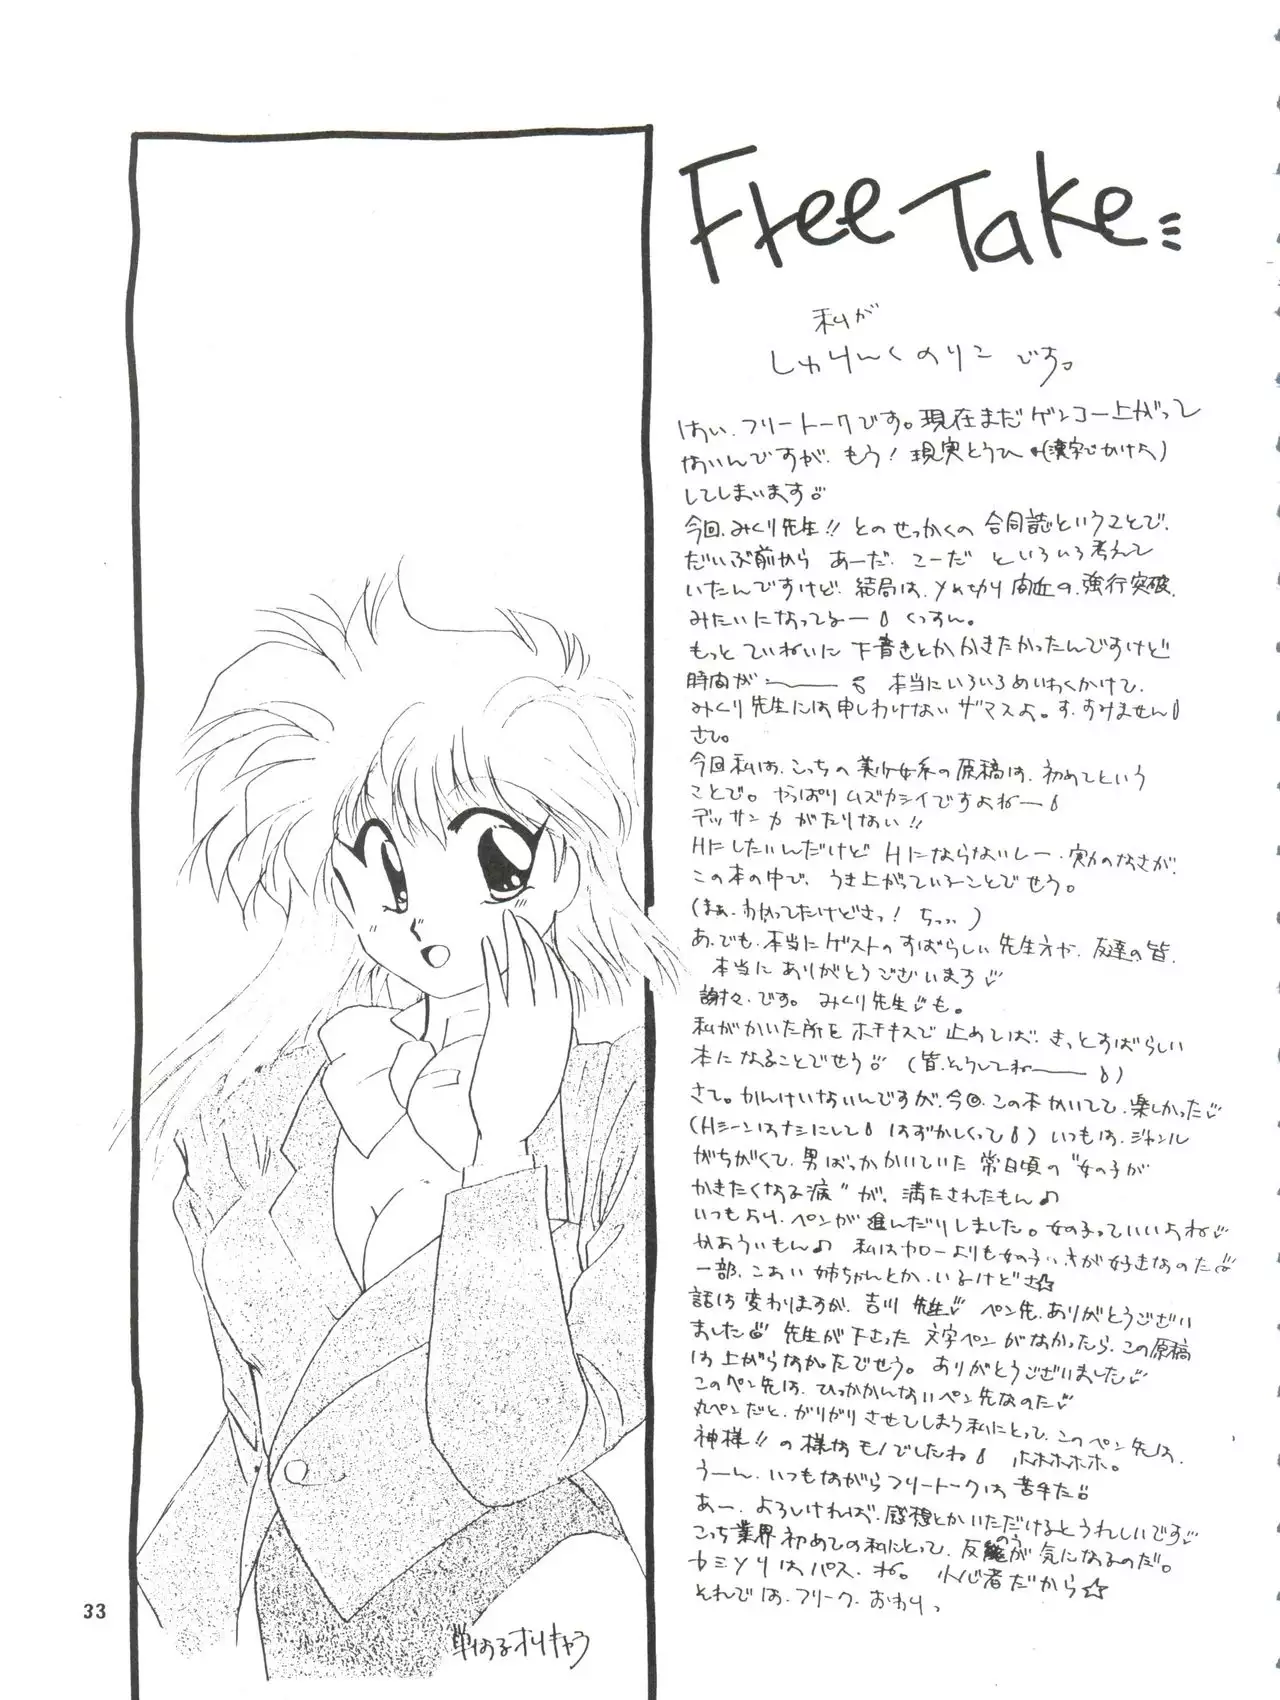 Free Take
私が
しゅりんくのりこ です。
はい、フリートークです。現在まだゲンコー上がって
ないんですが、もう!現実とうひ(漢字でかけよ)
してしまいます
今回、みくり先生!!とのせっかくの合同誌ということで、
だいぶ前から あーだ、こーだ といろいろ考えて
いたんですけど、結局は、〆め切り間近の、強行突破
みたいになってるー くっすん。
もっと ていねいに 下書きとかかきたかったんですけど
時間が―― 本当にいろいろめいわくかけて、
みくり先生には申しわけないザマスよ。す、すみません
さて。
今回私は、こっちの美少女系の原稿は、初めてという
ことで。やっぱりムズカシイですよねー
デッサン力がたりない!!
Hにしたいんだけど Hにならないしー、実力のなさが、
この本の中で、うき上がっていることでせう。
(まぁ、わかってたけどさっ!ちっ)
あ、でも、本当にゲストのすばらしい先生方や、友達の皆、
本当に ありがとうございます
謝々、です。みくり先生も。
私がかいた所をホチキスで止めてしまえば、きっとすばらしい
本になることでせう (皆、そうしてねー)
さて。かんけいないんですが、今回、この本かいてて、楽しかった
(Hシーンはナシにして はずかしくって) いつもは、ジャンル
がちがくて、男ばっかかいていた 常日頃の "女の子が
かきたくなる病" が、満たされたもん♪
いつもより、ペンが進んだりしました。女の子っていいよね
かあういもん♪ 私はヤローよりも女の子の方が好きなのだ
一部、こあい姉ちゃんとか、いるけどさ☆
話は変わりますが、吉川先生 ペン先、ありがとうござい
ました 先生が下さった 文字ペン がなかったら、この原稿
は上がらなかったでせう。ありがとうございました
このペン先は、ひっかかんないペン先なのだ
丸ペンだと、がりがりさせてしまう私にとって、このペン先は、
神様!!の様なモノでしたね ホホホホホ。
うーん、いつもながらフリートークは苦手だ
あー、よろしければ、感想とかいただけるとうれしいです
こっち業界初めての私にとって、反能のうが気になるのだ。
カミソリはパス、ね。小心者だから☆
それでは、フリーク、おわりっ
単なるオリキャラ
33